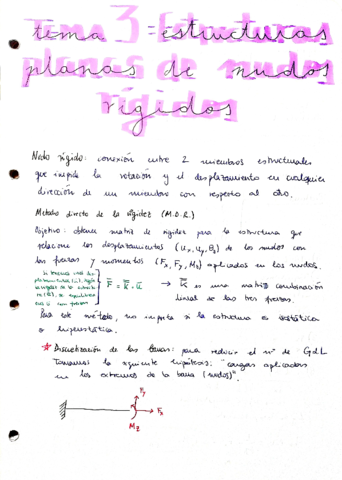 tema 3 = estructuras
planas de nudos
rígidos
Nodo rígido: conexión entre 2 miembros estructurales
que impide la rotación y el desplazamiento en cualquier
dirección de un miembro con respecto al otro.
Método directo de la rigidez (M.D.R.)
Objetivo: obtener matriz de rigidez para la estructura que
relacione los desplazamientos (Ux, Uy, θz) de los nudos con
las fuerzas y momentos (Fx, Fy, Mz) aplicados en los nudos.
F = K · u → K es una matriz combinación
lineal de las tres fuerzas.
Para este método, no importa si la estructura es isostática
o hiperestática.
* Discretización de las barras: para reducir el nº de GdL
Tomamos la siguiente hipótesis: "cargas aplicadas
en los extremos de la barra (nudos)".
Fy
Fx
Mz